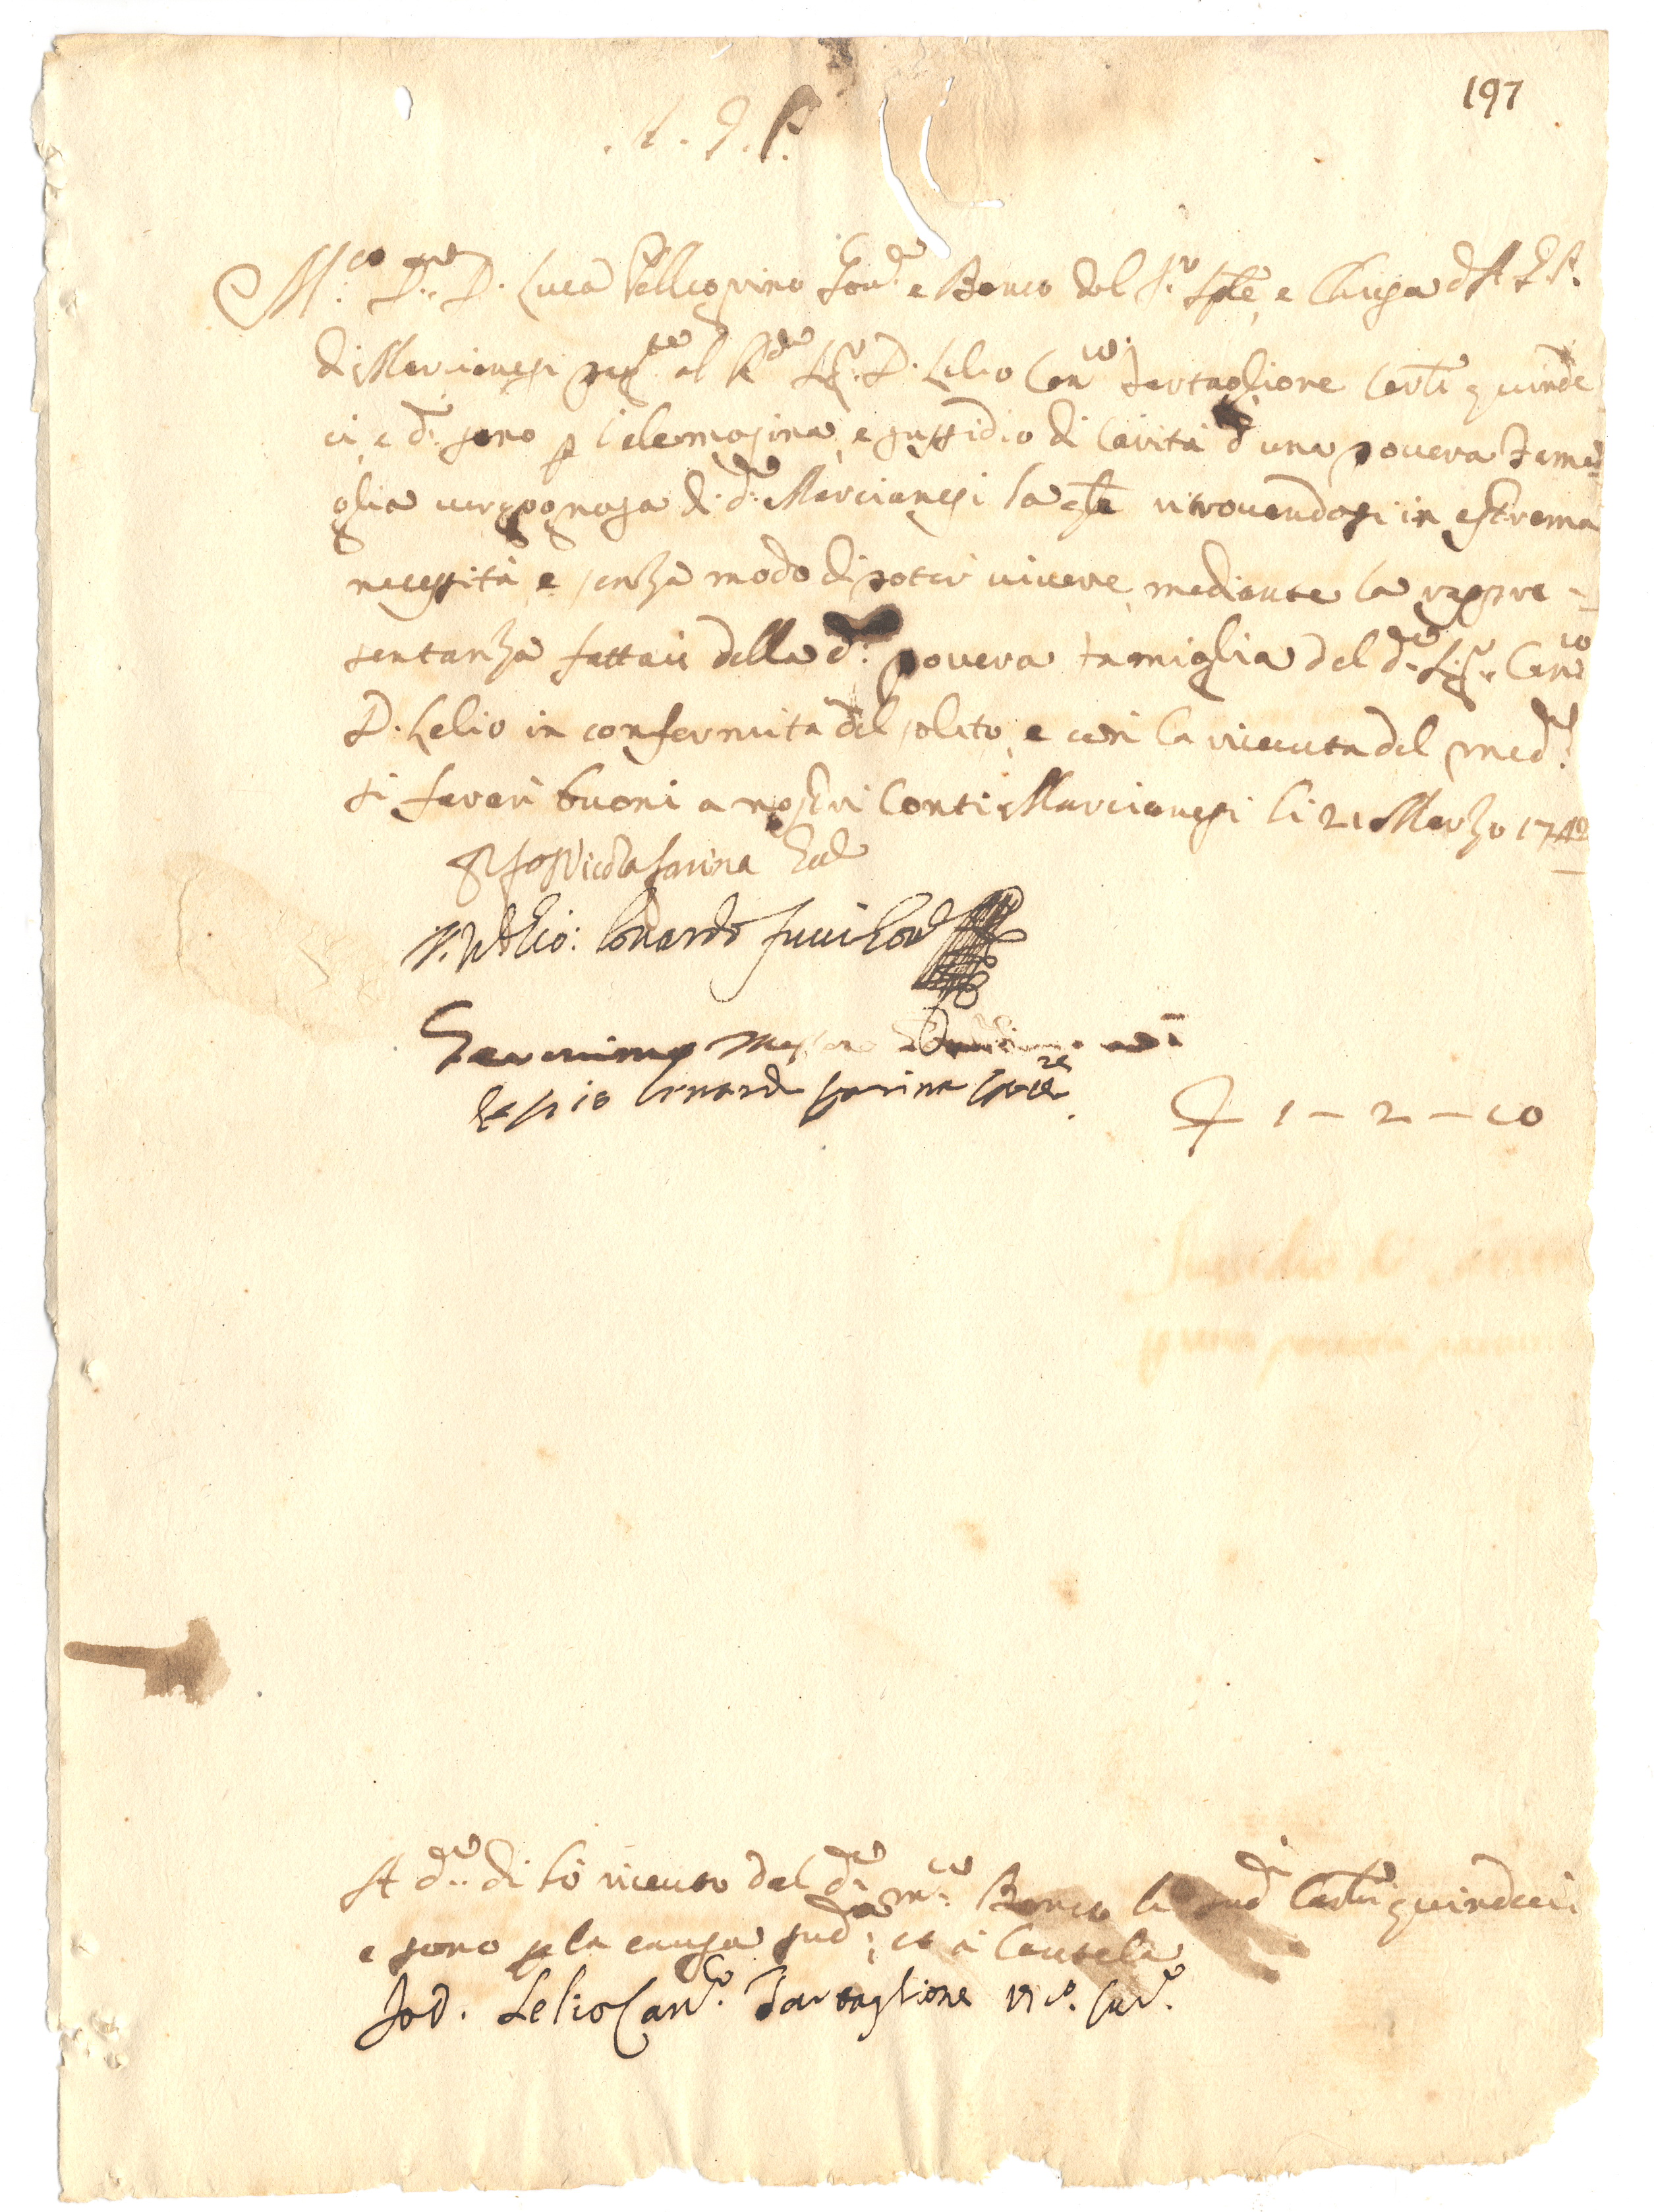 197
A. G. P.
M.co D.re D. Luca Pellegrino Gov.re e Banco del S.r Sple, e Chiesa d' A. G. P.
di Marcianesi pag.te al R.do Sig.r D. Lelio Can.co Tartaglione Carli quinde
ci, e d.i sono p l'elemosina, e sussidio di Carità d'una povera Fami
glia vergognosa di d.o Marcianesi la qle ritrovandosi in estrema
necessità, e senza modo di poter vivere, mediante la rappre-
sentanza fattaci della d.a povera famiglia dal d.o Sig.r Can.co
D. Lelio in conformità del solito, e con la riceuuta del med.o
si farań buoni a nostri Conti Marcianesi li 21 Marzo 1742
Nicola farina Gov.
Lonardo fucci Gov.
Geronimo
Lonardo farina
D 1 - 2 - 10
A d.o di hò riceuto dal d.o m.co Banco li sud.i Carli quindeci
e sono p la causa sud.a, et à Cautela
Io D. Lelio Can.co Tartaglione